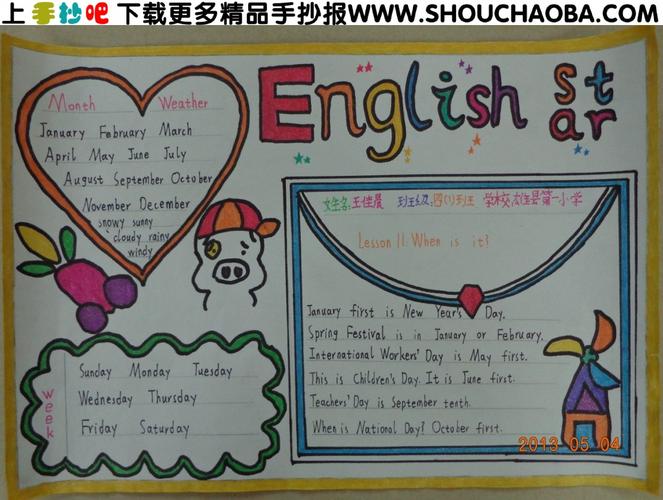 上 手抄吧 下载更多精品手抄报WWW.SHOUCHAOBA.COM
English star
Month Weather
January February March
April May June July
August September October
November December
snowy sunny
cloudy rainy
windy
姓名:王佳晨 班级:四(1)班 学校:雄县第一小学
Lesson 11. When is it?
January first is New Year's Day.
Spring Festival is in January or February.
International Workers' Day is May first.
This is Children's Day. It is June first.
Teachers' Day is September tenth.
When is National Day? October first.
week
Sunday Monday Tuesday
Wednesday Thursday
Friday Saturday
2013 05 04